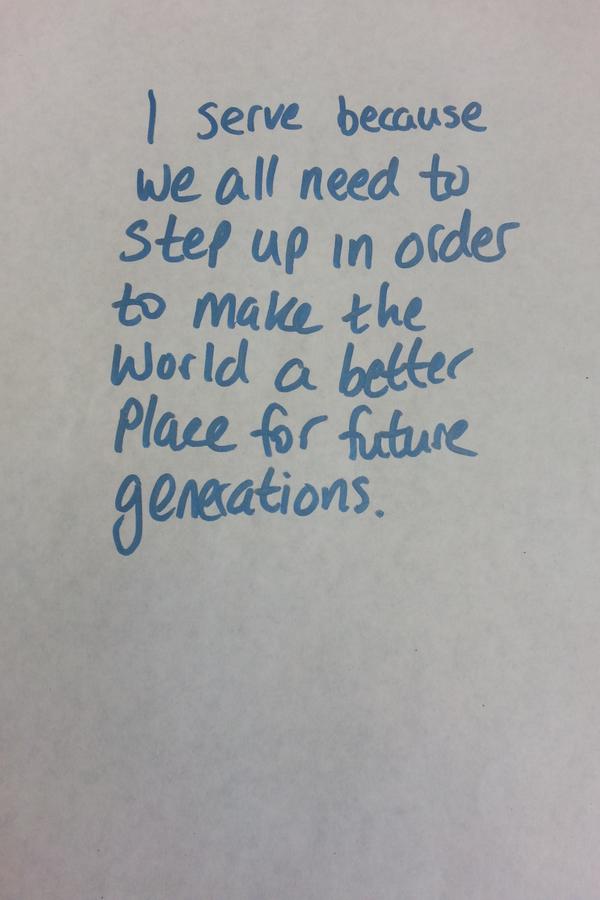 I serve because
we all need to
step up in order
to make the
world a better
place for future
generations.